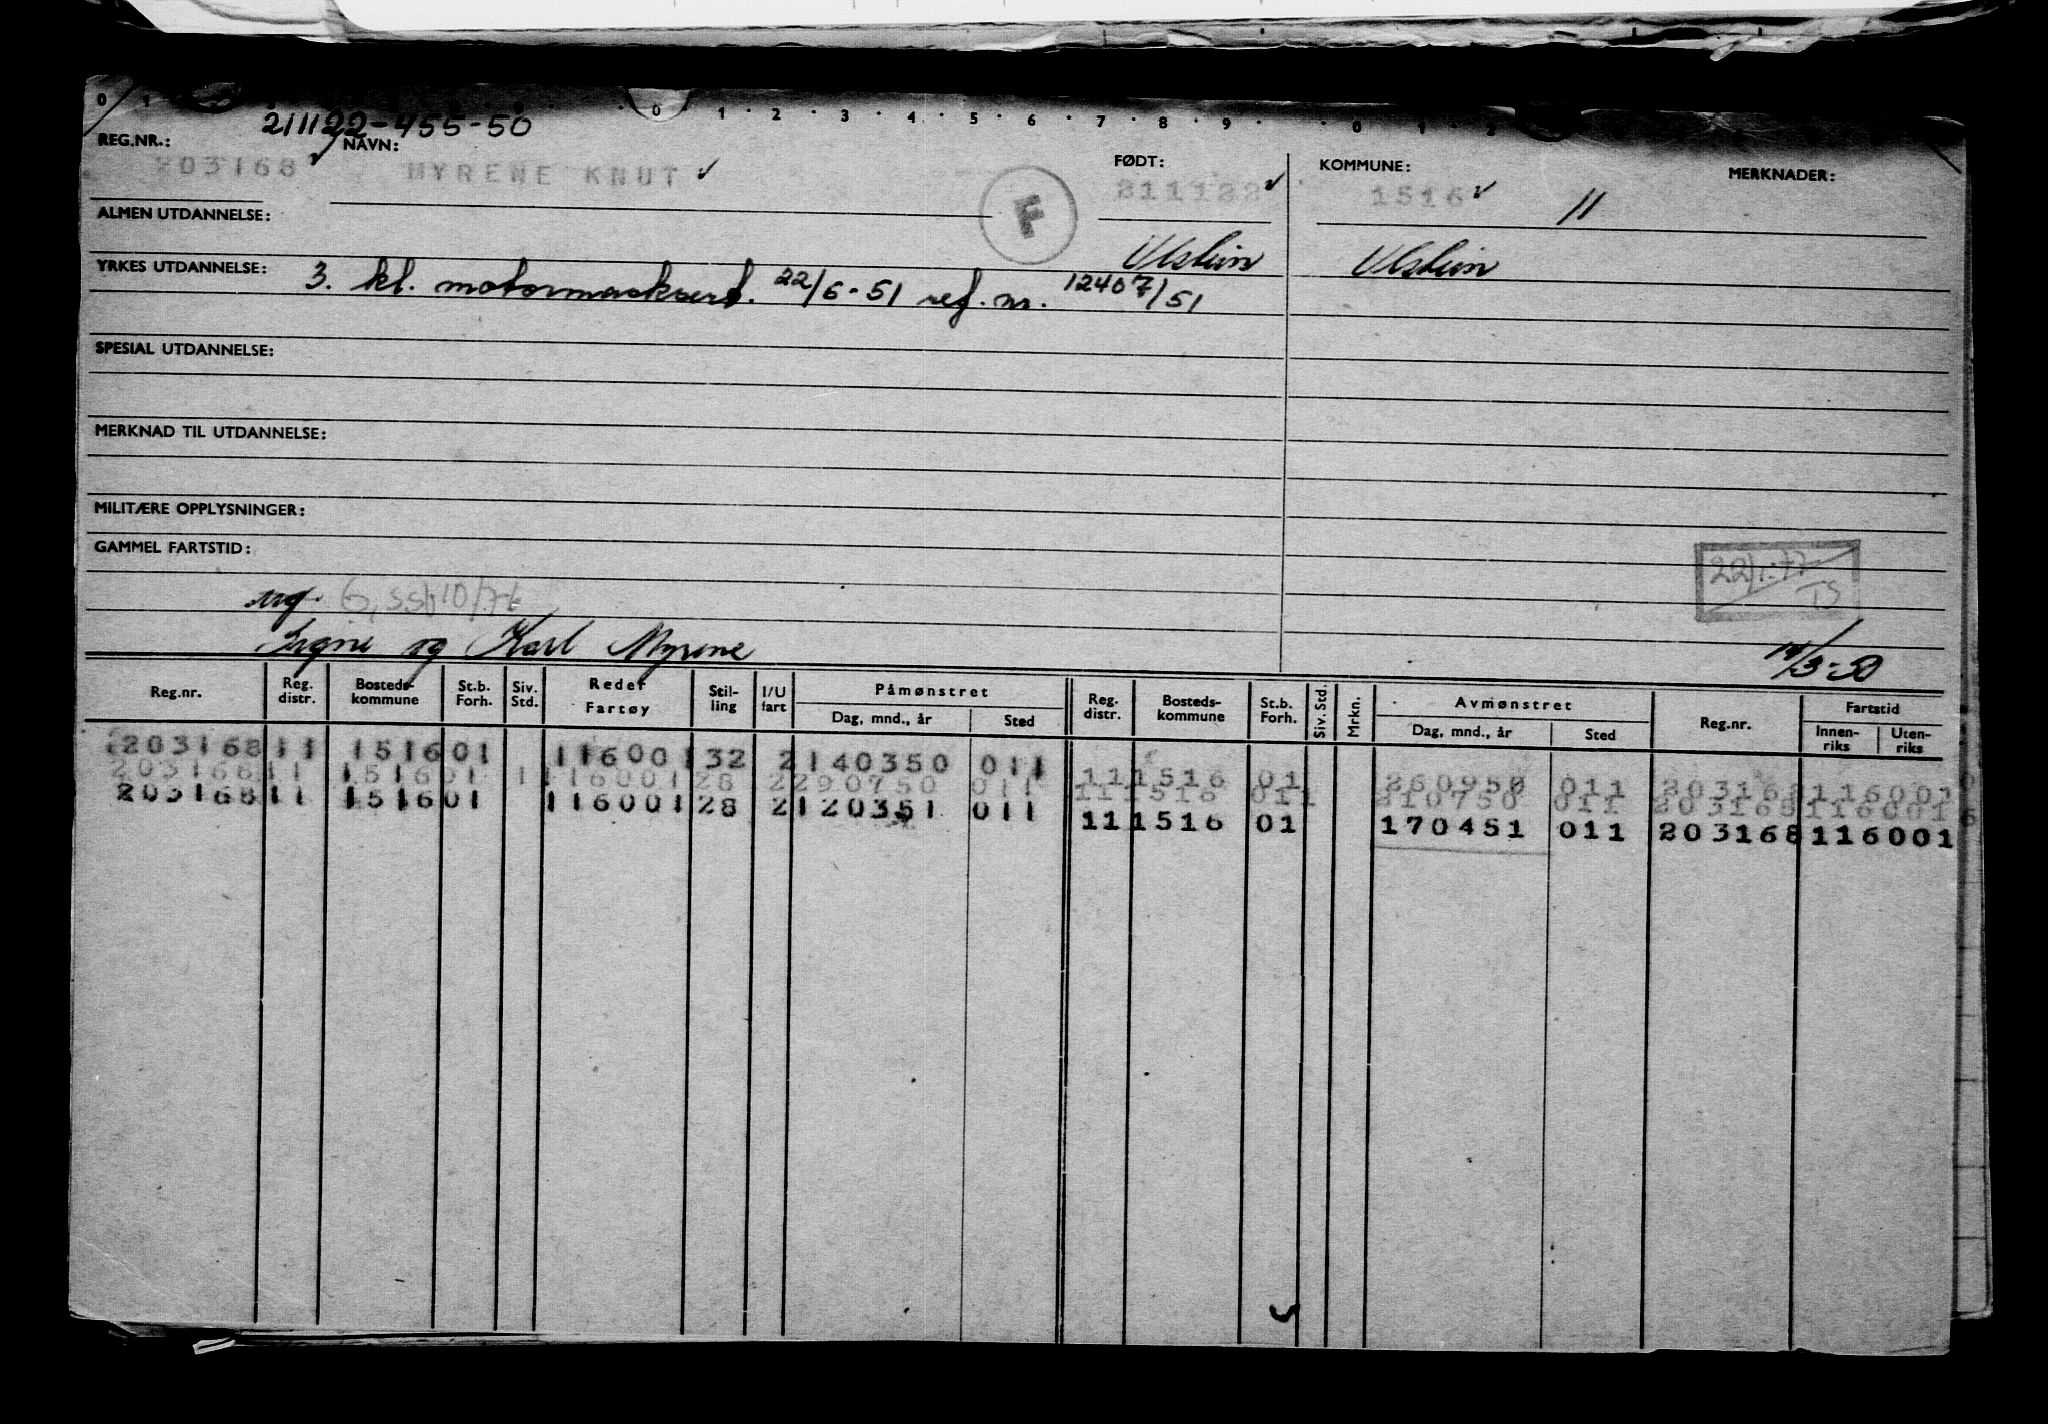 211122-455-50
REG.NR.: NAVN: FØDT: KOMMUNE: MERKNADER:
203168 MYRENE KNUT 211122 1516 11
F
ALMEN UTDANNELSE:
Ulstein Ulstein
YRKES UTDANNELSE: 3. kl. motormasksert. 22/6-51 ref. nr. 12407/51
SPESIAL UTDANNELSE:
MERKNAD TIL UTDANNELSE:
MILITÆRE OPPLYSNINGER:
GAMMEL FARTSTID:
ug.
og Karl Myrene
14/3-50
Reg.nr. Reg. distr. Bosteds-kommune St.b. Forh. Siv. Std. Rederi Fartøy Stil-ling I/U fart Påmønstret Dag, mnd., år Sted Reg. distr. Bosteds-kommune St.b. Forh. Siv. Std. Mrkn. Avmønstret Dag, mnd., år Sted Reg.nr. Fartstid Innen-riks Uten-riks
203168 11 1516 01 116001 32 2 140350 011
203168 11 1516 01 1 116001 28 2 290750 011 11 1516 01 260950 011 203168 116001
11 1516 01 1 210750 011 203168 116001
203168 11 1516 01 116001 28 2 120351 011
11 1516 01 170451 011 203168 116001